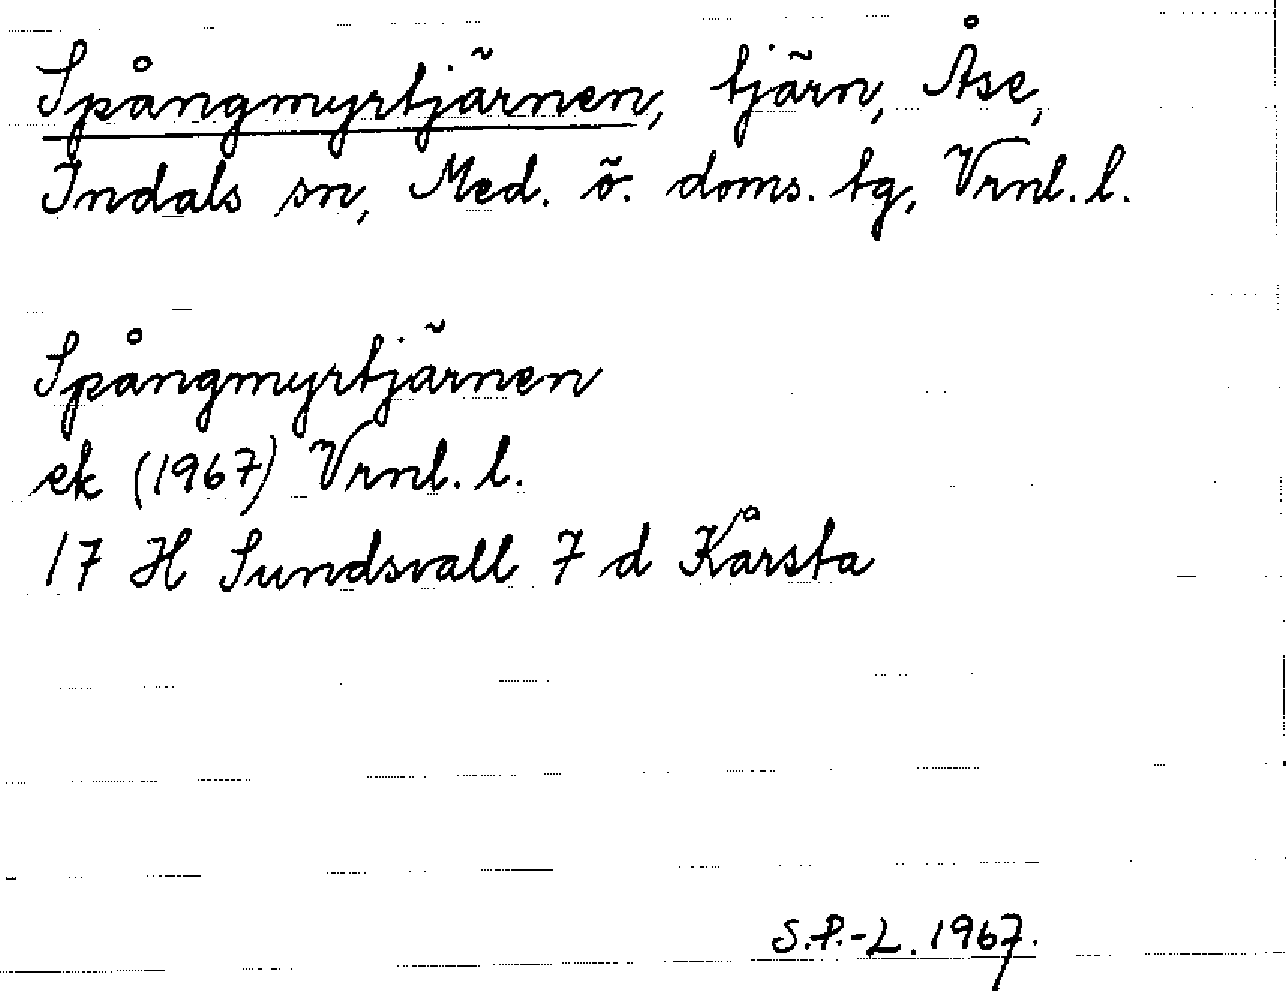 Spångmyrtjärnen, tjärn, Åse,
Indals sn, Med. ö. doms. tg, Vrnl. l.
Spångmyrtjärnen
ek (1967) Vrnl. l.
17 H Sundsvall 7 d Kårsta
S.P.-L. 1967.